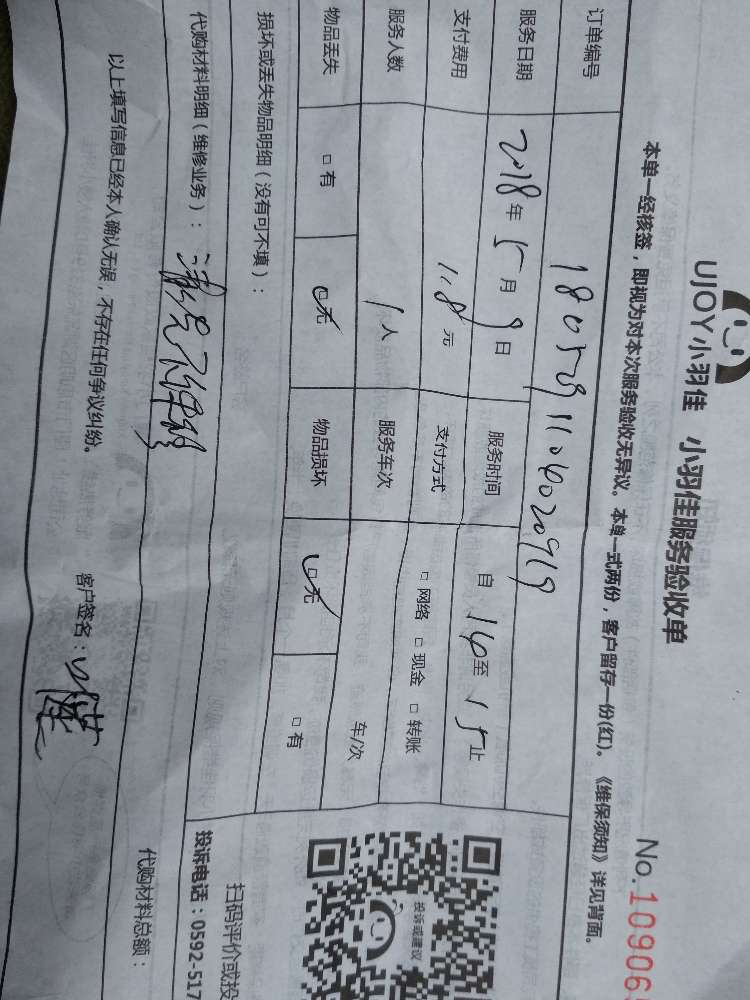 UJOY小羽佳 小羽佳服务验收单
No.109065
本单一经核签，即视为对本次服务验收无异议。本单一式两份，客户留存一份(红)。《维保须知》详见背面。
订单编号
服务日期 2018年5月9日 服务时间 自 14 至 15 止
支付费用 118元 支付方式 □ 网络 □ 现金 □ 转账
服务人数 1人 服务车次 车/次
物品丢失 □ 有 □ 无 物品损坏 □ 无 □ 有
损坏或丢失物品明细（没有可不填）：
代购材料明细（维修业务）：
代购材料总额：
以上填写信息已经本人确认无误，不存在任何争议纠纷。 客户签名：
投诉或建议
扫码评价或投
投诉电话：0592-517